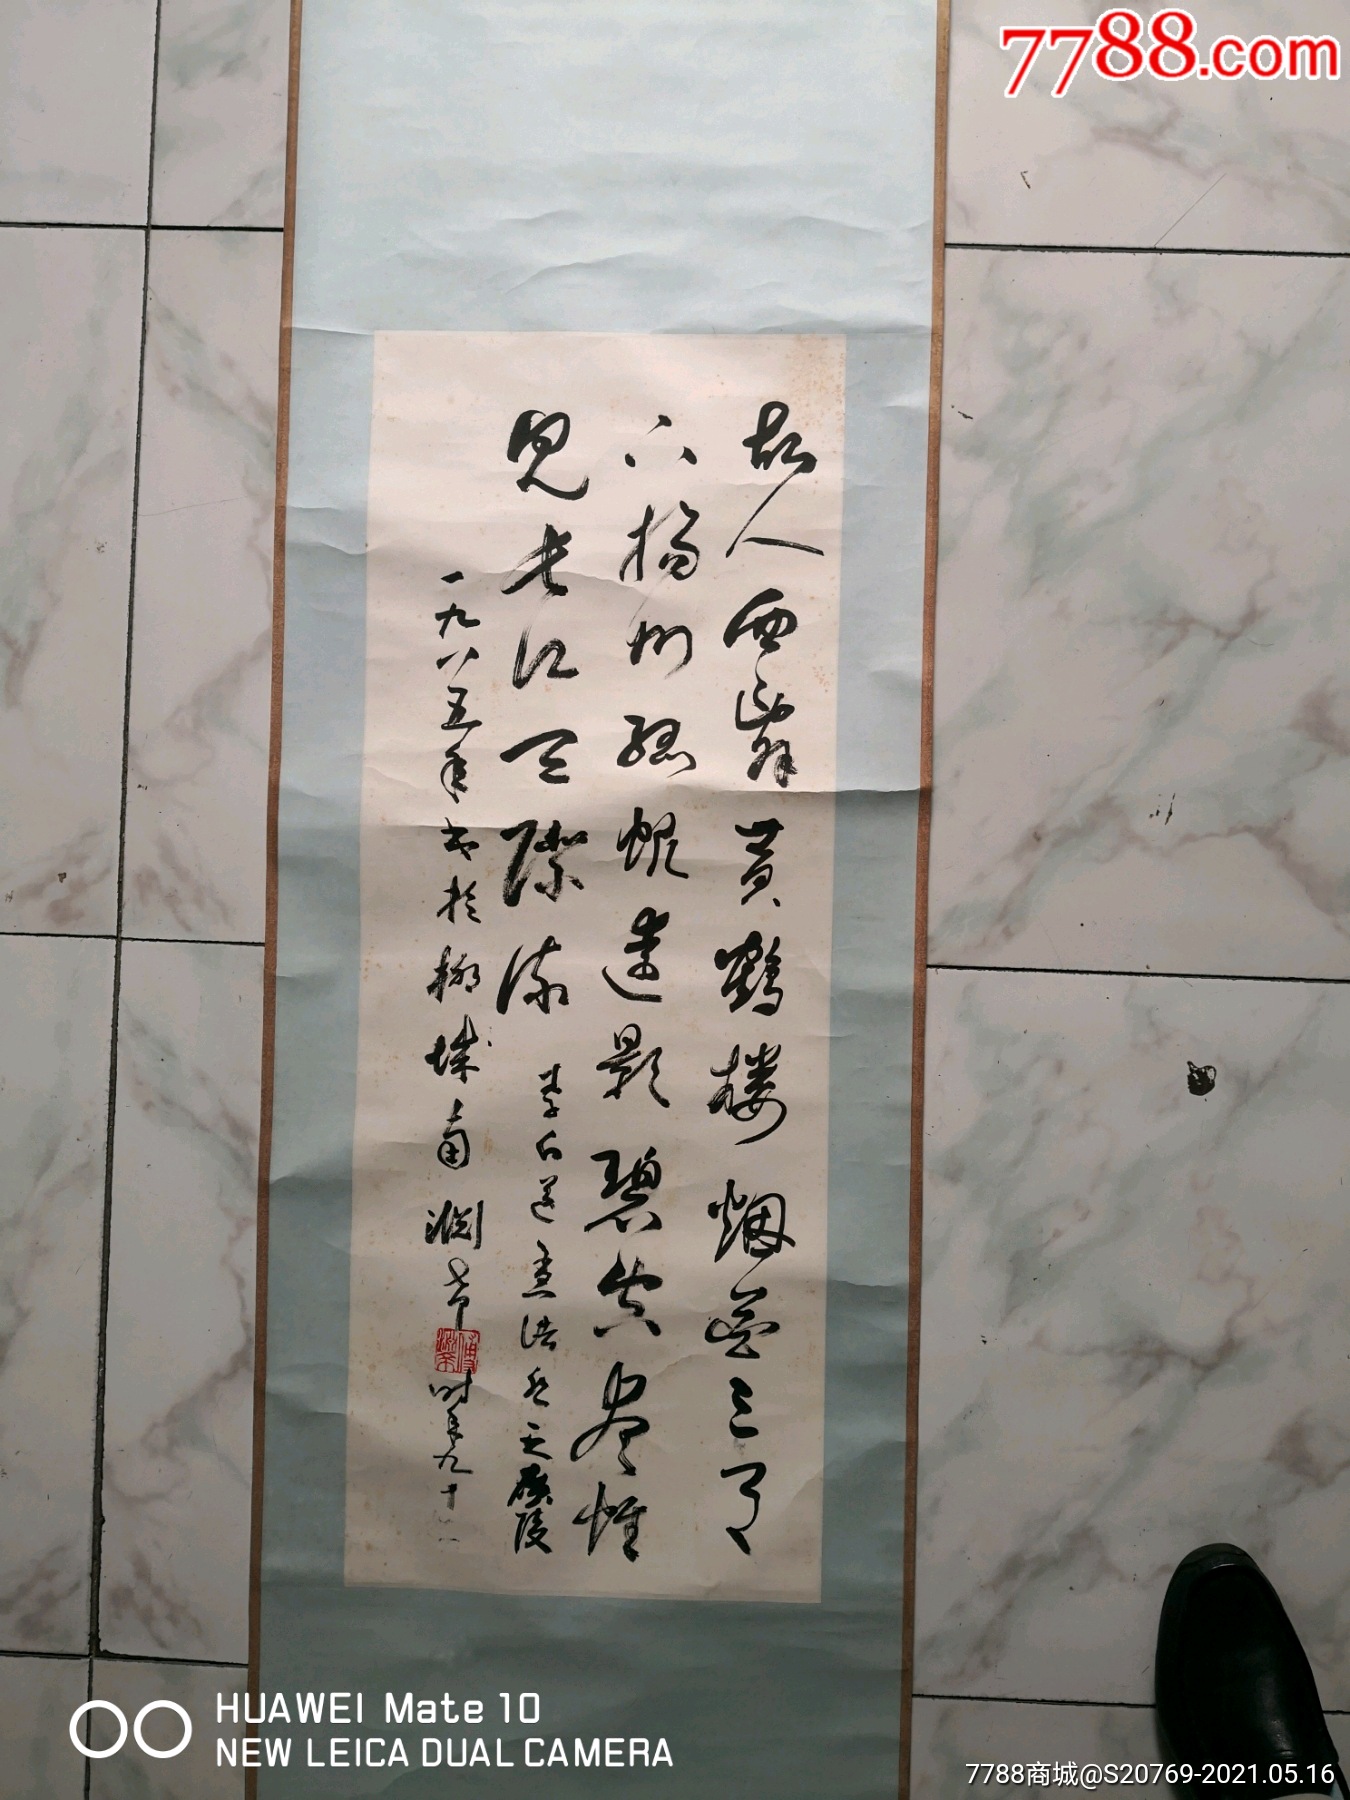 7788.com
故人西辭黄鹤楼烟花三月
下揚州孤帆遠影碧空盡惟
見長江天際流 李白送孟浩然之廣陵
一九八五年書於柳城南 時年九十
HUAWEI Mate 10
NEW LEICA DUAL CAMERA
7788商城@S20769-2021.05.16